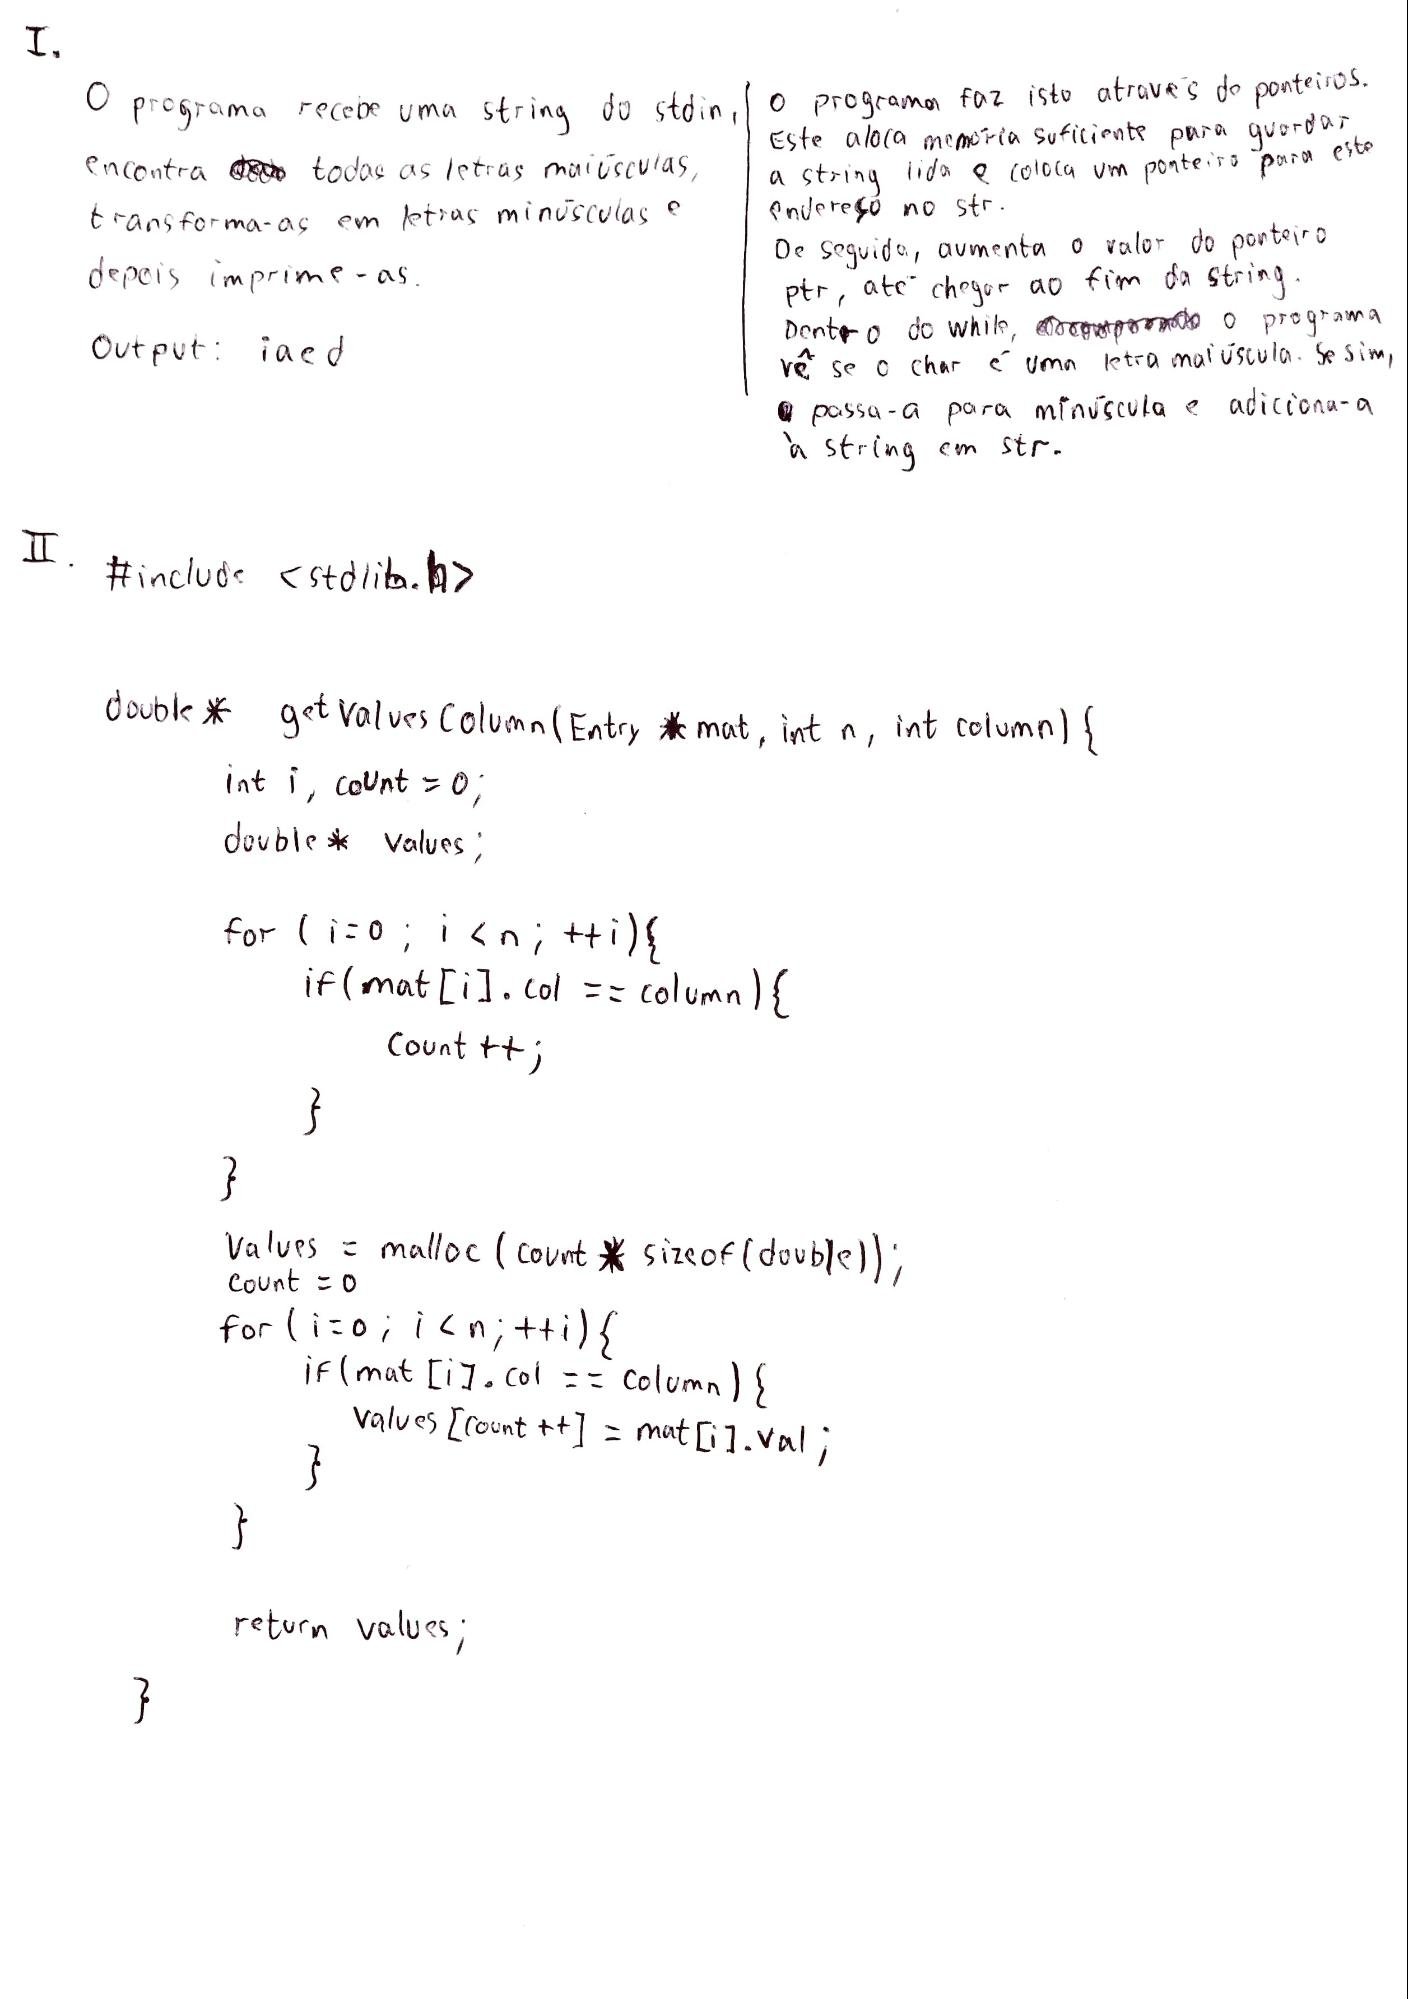 I.
O programa recebe uma string do stdin,
encontra todas as letras maiúsculas,
transforma-as em letras minúsculas e
depois imprime-as.
Output: iaed
O programa faz isto através de ponteiros.
Este aloca memória suficiente para guardar
a string lida e coloca um ponteiro para este
endereço no str.
De seguida, aumenta o valor do ponteiro
ptr, até chegar ao fim da string.
Dentro do while, o programa
vê se o char é uma letra maiúscula. Se sim,
passa-a para minúscula e adiciona-a
à string em str.
II.
#include <stdlib.h>
double* getValuesColumn(Entry *mat, int n, int column){
int i, count = 0;
double* values;
for (i=0; i<n; ++i){
if(mat[i].col == column){
count++;
}
}
values = malloc(count * sizeof(double));
count = 0
for(i=0; i<n; ++i){
if(mat[i].col == column){
values[count++] = mat[i].val;
}
}
return values;
}